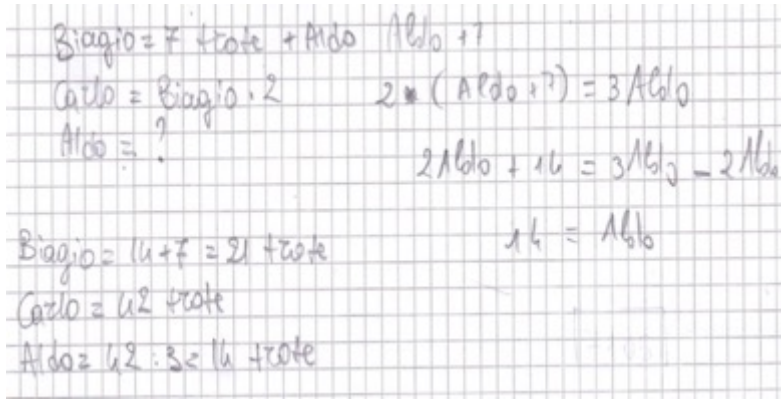 Biagio = 7 trote + Aldo Aldo + 7
Carlo = Biagio · 2 2 · (Aldo + 7) = 3 Aldo
Aldo = ?
2 Aldo + 14 = 3 Aldo - 2 Aldo
14 = Aldo
Biagio = 14 + 7 = 21 trote
Carlo = 42 trote
Aldo = 42 : 3 = 14 trote